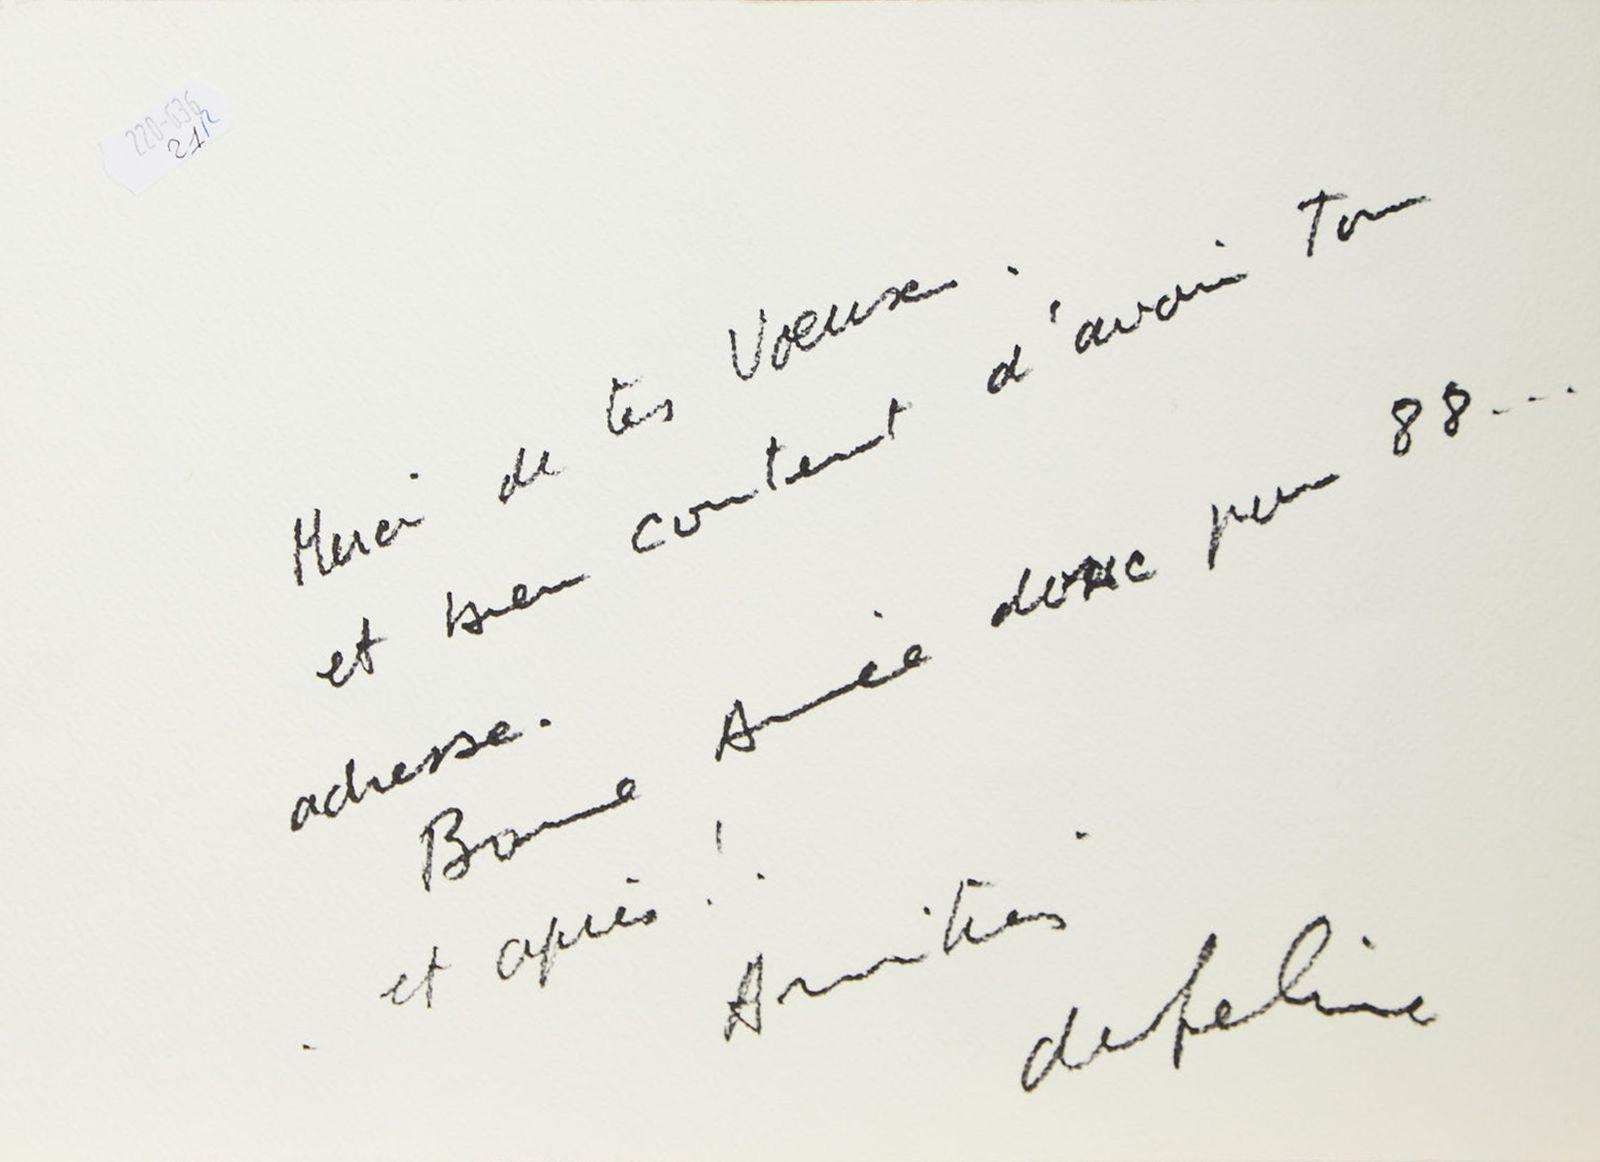 220-636
21
Merci de tes Vœux.
et bien content d'avoir Ton
adresse.
Bonne Année donc pour 88...
et après !
Amitiés